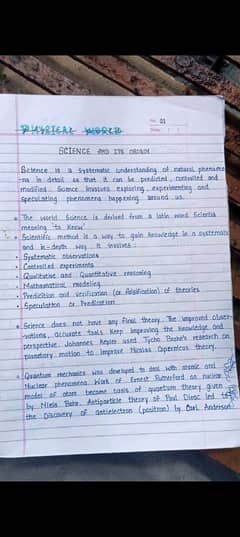 No. 01
PHYSICAL WORLD
Date
SCIENCE AND ITS ORIGIN
Science is a systematic understanding of natural phenome
-na in detail so that it can be predicted, controlled and
modified. Science involves exploring, experimenting and
speculating phenomena happening around us.
The world Science is derived from a latin word Scientia
meaning 'to know'.
Scientific method is a way to gain knowledge in a systematic
and in-depth way. It involves:
Systematic observations
Controlled experiments
Qualitative and Quantitative reasoning
Mathematical modeling
Prediction and verification (or falsification) of theories
Speculation or Prediction
Science does not have any final theory. The improved obser-
-vations, accurate tools keep improving the knowledge and
perspective. Johannes Kepler used Tycho Brahe's research on
planetary motion to improve Nicolas Copernicus theory.
Quantum mechanics was developed to deal with atomic and
Nuclear phenomena. Work of Ernest Rutherford on nuclear
model of atom became basis of quantum theory given
by Niels Bohr. Antiparticle theory of Paul Dirac led to
the discovery of antielectron (positron) by Carl Anderson.